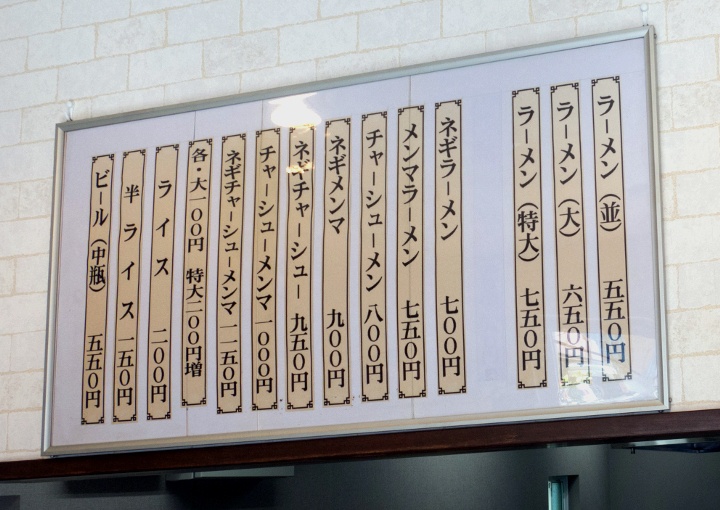 ラーメン（並） 五五〇円
ラーメン（大） 六五〇円
ラーメン（特大） 七五〇円
ネギラーメン 七〇〇円
メンマラーメン 七五〇円
チャーシューメン 八〇〇円
ネギメンマ 九〇〇円
ネギチャーシュー 九五〇円
チャーシューメンマ 一〇〇〇円
ネギチャーシューメンマ 一一五〇円
各・大一〇〇円 特大二〇〇円増
ライス 二〇〇円
半ライス 一五〇円
ビール（中瓶） 五五〇円